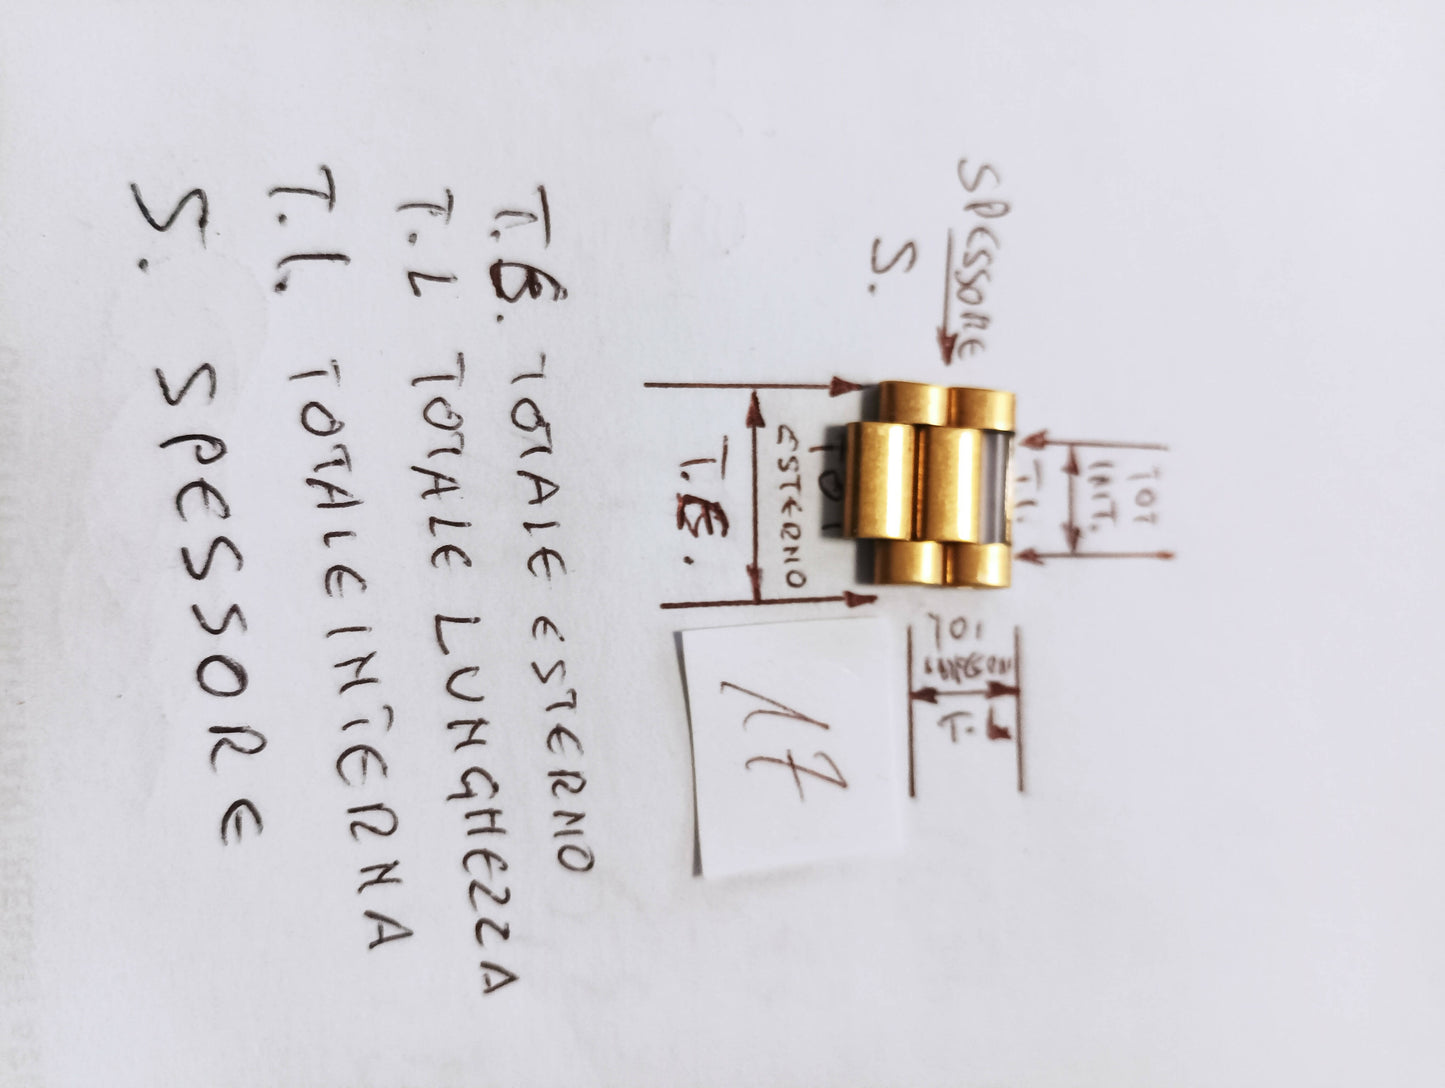 TOT
INT.
T.I.
SPESSORE
S.
TOT
ESTERNO
T.E.
17
T.E. TOTALE ESTERNO
T.L TOTALE LUNGHEZZA
T.I. TOTALE INTERNA
S. SPESSORE